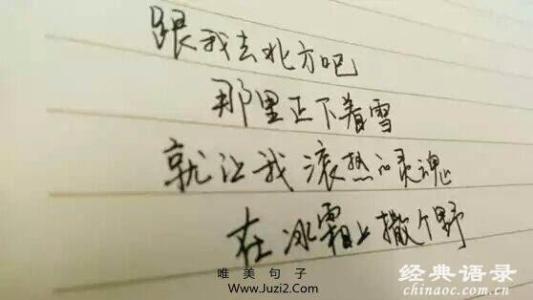 跟我去北方吧
那里正下着雪
就让我滚热的灵魂
在冰霜上撒个野
唯美句子
www.Juzi2.Com
经典语录
chinaoc.com.cn